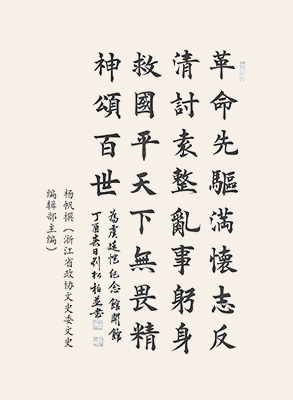 革命先驅滿懷志反
清討袁整亂事躬身
救國平天下無畏精
神頌百世
為虞廷愷纪念館開館
丁酉春日刘松柏並书
杨帆撰（浙江省政协文史委文史
编辑部主编）